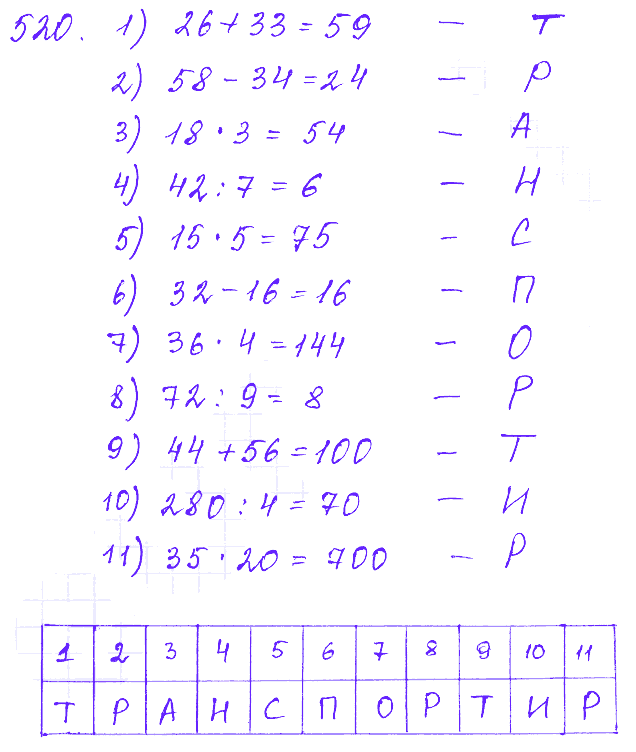 520. 1) 26 + 33 = 59 — Т
2) 58 - 34 = 24 — Р
3) 18 · 3 = 54 — А
4) 42 : 7 = 6 — Н
5) 15 · 5 = 75 — С
6) 32 - 16 = 16 — П
7) 36 · 4 = 144 — О
8) 72 : 9 = 8 — Р
9) 44 + 56 = 100 — Т
10) 280 : 4 = 70 — И
11) 35 · 20 = 700 — Р
1 2 3 4 5 6 7 8 9 10 11
Т Р А Н С П О Р Т И Р